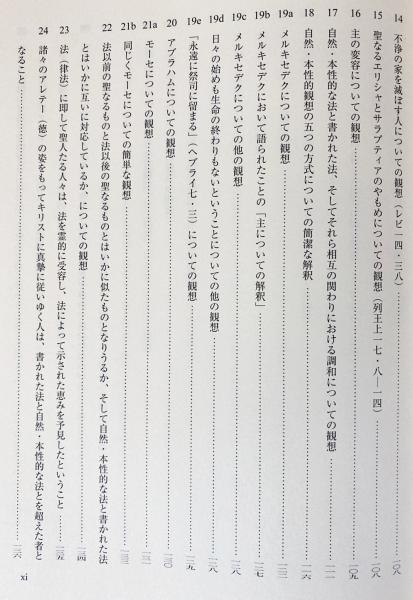 14 不浄の家を滅ぼす人についての観想(レビ一四・三八)……一〇八
15 聖なるエリシャとサラプティアのやもめについての観想(列王上一七・八―一四)……一〇八
16 主の変容についての観想……一〇九
17 自然・本性的な法と書かれた法、そしてそれら相互の関わりにおける調和についての観想……一一一
18 自然・本性的観想の五つの方式についての簡潔な解釈……一一六
19a メルキセデクについての観想……一二三
19b メルキセデクにおいて語られたことの「主についての解釈」……一二七
19c メルキセデクについての他の観想……一二八
19d 日々の始めも生命の終わりもないということについての他の観想……一二八
19e 「永遠に祭司に留まる」(ヘブライ七・三)についての観想……一二九
20 アブラハムについての観想……一三〇
21a モーセについての観想……一三一
21b 同じくモーセについての簡単な観想……一三三
22 法以前の聖なるものと法以後の聖なるものとはいかに似たものとなりうるか、そして自然・本性的な法と書かれた法
とはいかに互いに対応しているか、についての観想……一三四
23 法(律法)に即して聖人たる人々は、法を霊的に受容し、法によって示された恵みを予見したということ……一三五
24 諸々のアレテー(徳)の姿をもってキリストに真摯に従いゆく人は、書かれた法と自然・本性的な法とを超えた者と
なること……一三六
xi